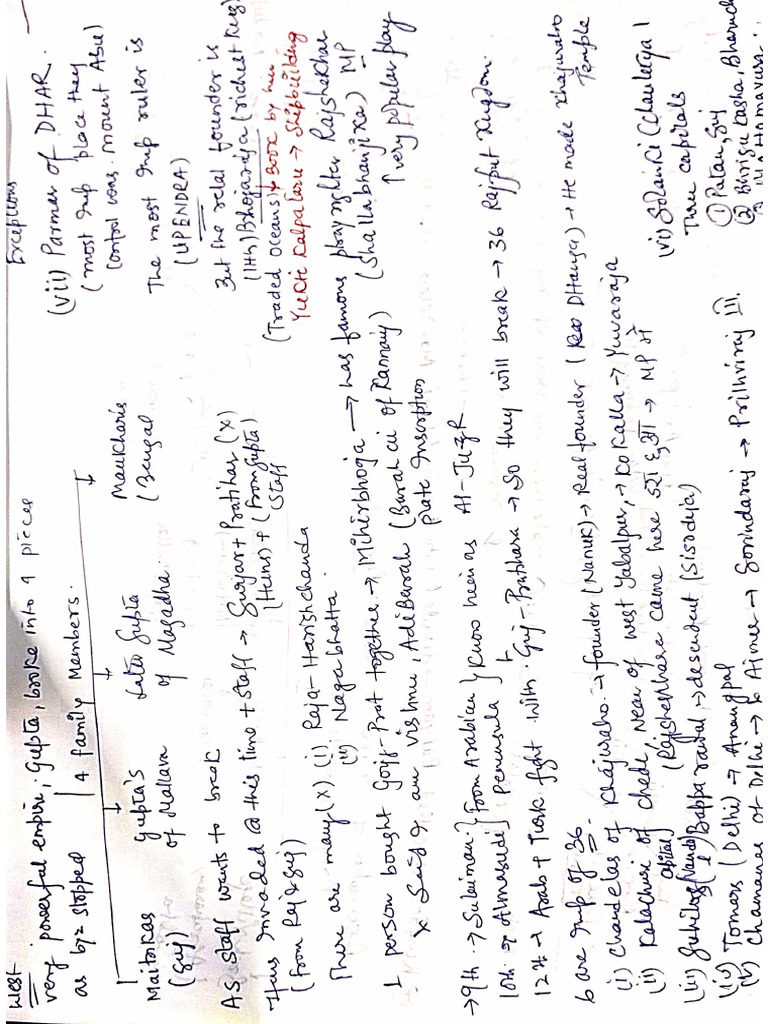 West
very powerful empire, Gupta, broke into 4 pieces
as biz stopped 4 family Members.
Maitrakas Gupta's Later Gupta Maukharis
(Guj) of Malava of Magadha. (Bengal
As staff wants to break
Huns Invaded @ this time + Staff → Gurjar + Pratihar (X)
(from Raj & Guj) (Huns) + (From Gupta) Staff
There are many (X) (i) Raja - Harishchanda
(ii) Nagabhatta.
1 person bought Gojj-Prat together → Mihirbhoja → has famous playwrighter Rajshekhar
X Said I am Vishnu, Adi Barah (Barah cu of Kannauj) (Shallabhanjika) MP
plate Inscription ↑ very popular play
→ 9th → Sulaiman } From Arabian } Know him as Al-Juzr
10th → Almasudi } Peninsula
12th → Arab + Turk fight with Guj-Pratihara → So they will break → 36 Rajput Kingdom.
6 are imp of 36.
(i) Chandelas of Khajuraho. → founder (Nanuk) → Real founder (Dhanga) → He made Khajuraho Temple
(ii) Kalachuri of chedi near of west Jabalpur, → Kokalla → Yuvaraja
(Rajshekhara came here → MP में
(iii) Guhilas Bappa rawal → descendent (Sisodiya)
(iv) Tomars (Delhi) → Anangpal
(v) Chamanas of Delhi → & Ajmer → Govindaraj → Prithviraj III.
(vi) Solanki (Chaulukya)
Three capitals
① Patan, Guj
② Bhrigu Casha, Bharuch
Exceptions
(vii) Parmar of DHAR.
(most imp place they
control was. mount Abu)
The most imp ruler is
(UPENDRA)
But the real founder is
(11th) Bhojaraja (richest King)
(Traded Oceans) & book by him
Yukti Kalpataru → Shipbuilding